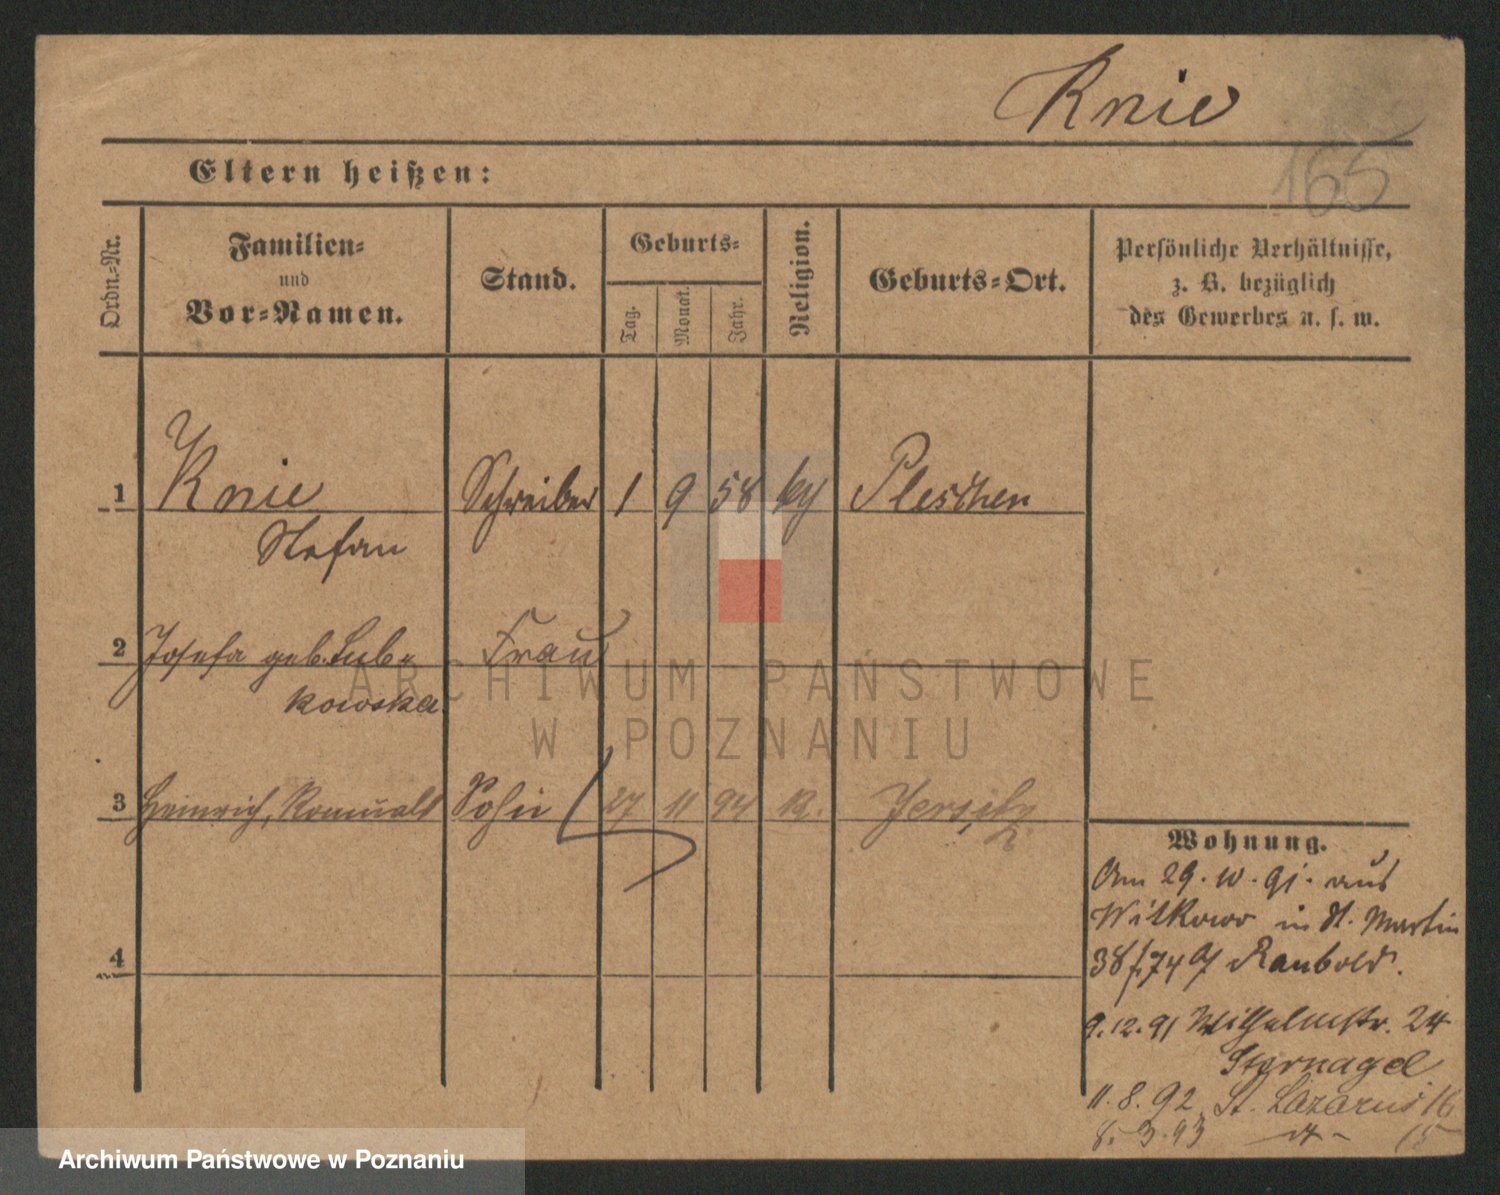 Knie
165
Eltern heißen:
Ordn.-Nr.
Familien-
und
Vor-Namen.
Stand.
Geburts-
Tag.
Monat.
Jahr.
Religion.
Geburts-Ort.
Persönliche Verhältnisse,
z. B. bezüglich
des Gewerbes u. s. w.
1 Knie Schreiber 1 9 58 Pleschen
Stefan
2 Josefa geb. Lub- Frau
kowska
3 Heinrich, Romuald Sohn 27 11 94 K. Jersitz
4
Wohnung.
Am 29. 10. 91. aus
Witkowo in St. Martin
38 f. 74 Raubold.
9.12.91 Wilhelmstr. 24
Sternagel
11. 8. 92 St. Lazarus 16
8. 3. 93 15
ARCHIWUM PAŃSTWOWE
W POZNANIU
Archiwum Państwowe w Poznaniu